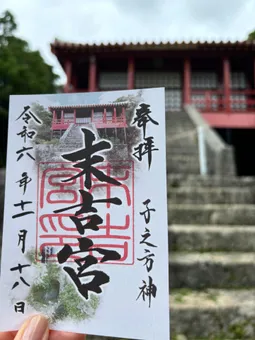 奉拝
子之方神
末吉宮
令和六年十一月十八日